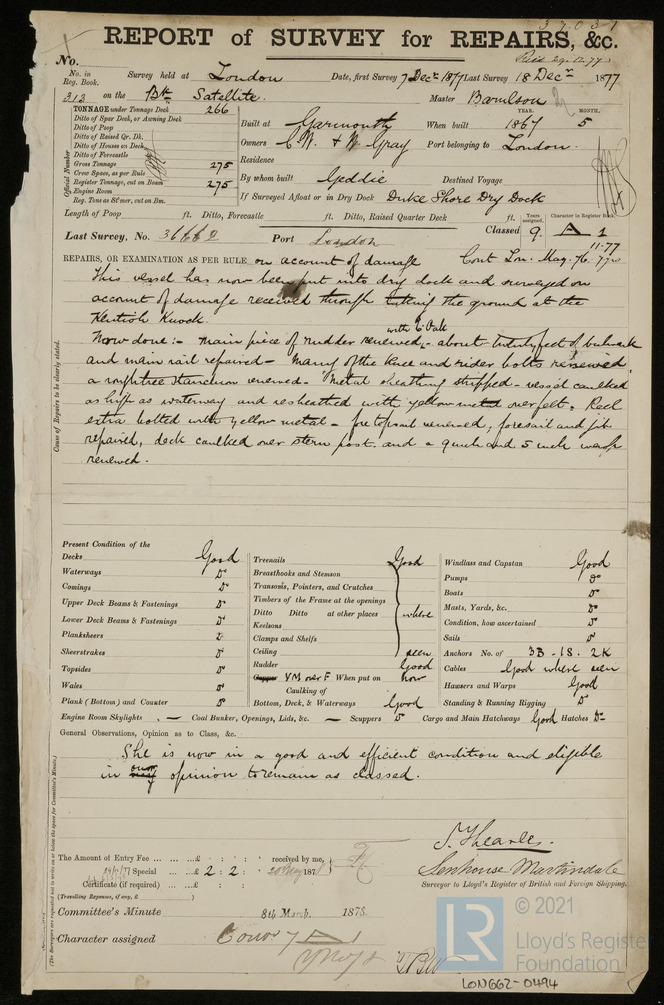 37031
REPORT of SURVEY for REPAIRS, &c.
No.
No. in Reg. Book. Survey held at London Date, first Survey 7 Decr 1877 Last Survey 18 Decr 1877
313 on the Bk Satellite. Master
YEAR. MONTH.
TONNAGE under Tonnage Deck 266
Ditto of Spar Deck, or Awning Deck
Ditto of Poop
Ditto of Raised Qr. Dk.
Ditto of Houses on Deck
Ditto of Forecastle
Gross Tonnage 275
Crew Space, as per Rule
Register Tonnage, cut on Beam 275
Engine Room
Reg. Tons as St'mer, cut on Bm.
Official Number
Built at Garmouth When built 1867 5
Owners C.N. & W Gray Port belonging to London.
Residence
By whom built Geddie Destined Voyage
If Surveyed Afloat or in Dry Dock Duke Shore Dry Dock
Length of Poop ft. Ditto, Forecastle ft. Ditto, Raised Quarter Deck ft.
Years assigned. Character in Register Book
Last Survey, No. Port London Classed 9. A 1
11-77
REPAIRS, OR EXAMINATION AS PER RULE on account of damage Cont Lon. May. 76.
This vessel has now been put into dry dock and surveyed on
account of damage received through the ground at the
Kentish Knock.
Now done:- main piece of rudder renewed, with E Oak about twenty feet of bulwark
and main rail repaired - Many of the knee and rider bolts renewed,
a roughtree stanchion renewed - Metal sheathing stripped - vessel caulked
as high as waterway and resheathed with yellow metal over felt. Keel
extra bolted with yellow metal - fore topsail renewed, foresail and jib
repaired, deck caulked over stern post. and a 9 inch and 5 inch warp
renewed.
Cause of Repairs to be clearly stated.
Present Condition of the
Decks Good
Waterways Do
Comings Do
Upper Deck Beams & Fastenings Do
Lower Deck Beams & Fastenings Do
Planksheers Do
Sheerstrakes Do
Topsides Do
Wales Do
Plank (Bottom) and Counter Do
Treenails Good
Breasthooks and Stemson
Transoms, Pointers, and Crutches
Timbers of the Frame at the openings
Ditto Ditto at other places where
Keelsons
Clamps and Shelfs
Ceiling seen
Rudder Good
Copper YM over F When put on now
Caulking of
Bottom, Deck, & Waterways Good
Windlass and Capstan Good
Pumps Do
Boats Do
Masts, Yards, &c. Do
Condition, how ascertained Do
Sails Do
Anchors No. of 3B . 1S . 2K
Cables Good where seen
Hawsers and Warps Good
Standing & Running Rigging Do
Engine Room Skylights . — Coal Bunker, Openings, Lids, &c. — Scuppers Do Cargo and Main Hatchways Good Hatches Do
General Observations, Opinion as to Class, &c.
She is now in a good and efficient condition and eligible
in our opinion to remain as classed.
(The Surveyors are requested not to write on or below the space for Committee's Minute.)
The Amount of Entry Fee £ : : received by me,
Special £ 2 : 2 : 187
Certificate (if required) £ : :
(Travelling Expenses, if any, £ )
Senhouse Martindale
Surveyor to Lloyd's Register of British and Foreign Shipping.
Committee's Minute 8th March 1878.
Character assigned A 1
© 2021
LR Lloyd's Register
Foundation
LON662-0494